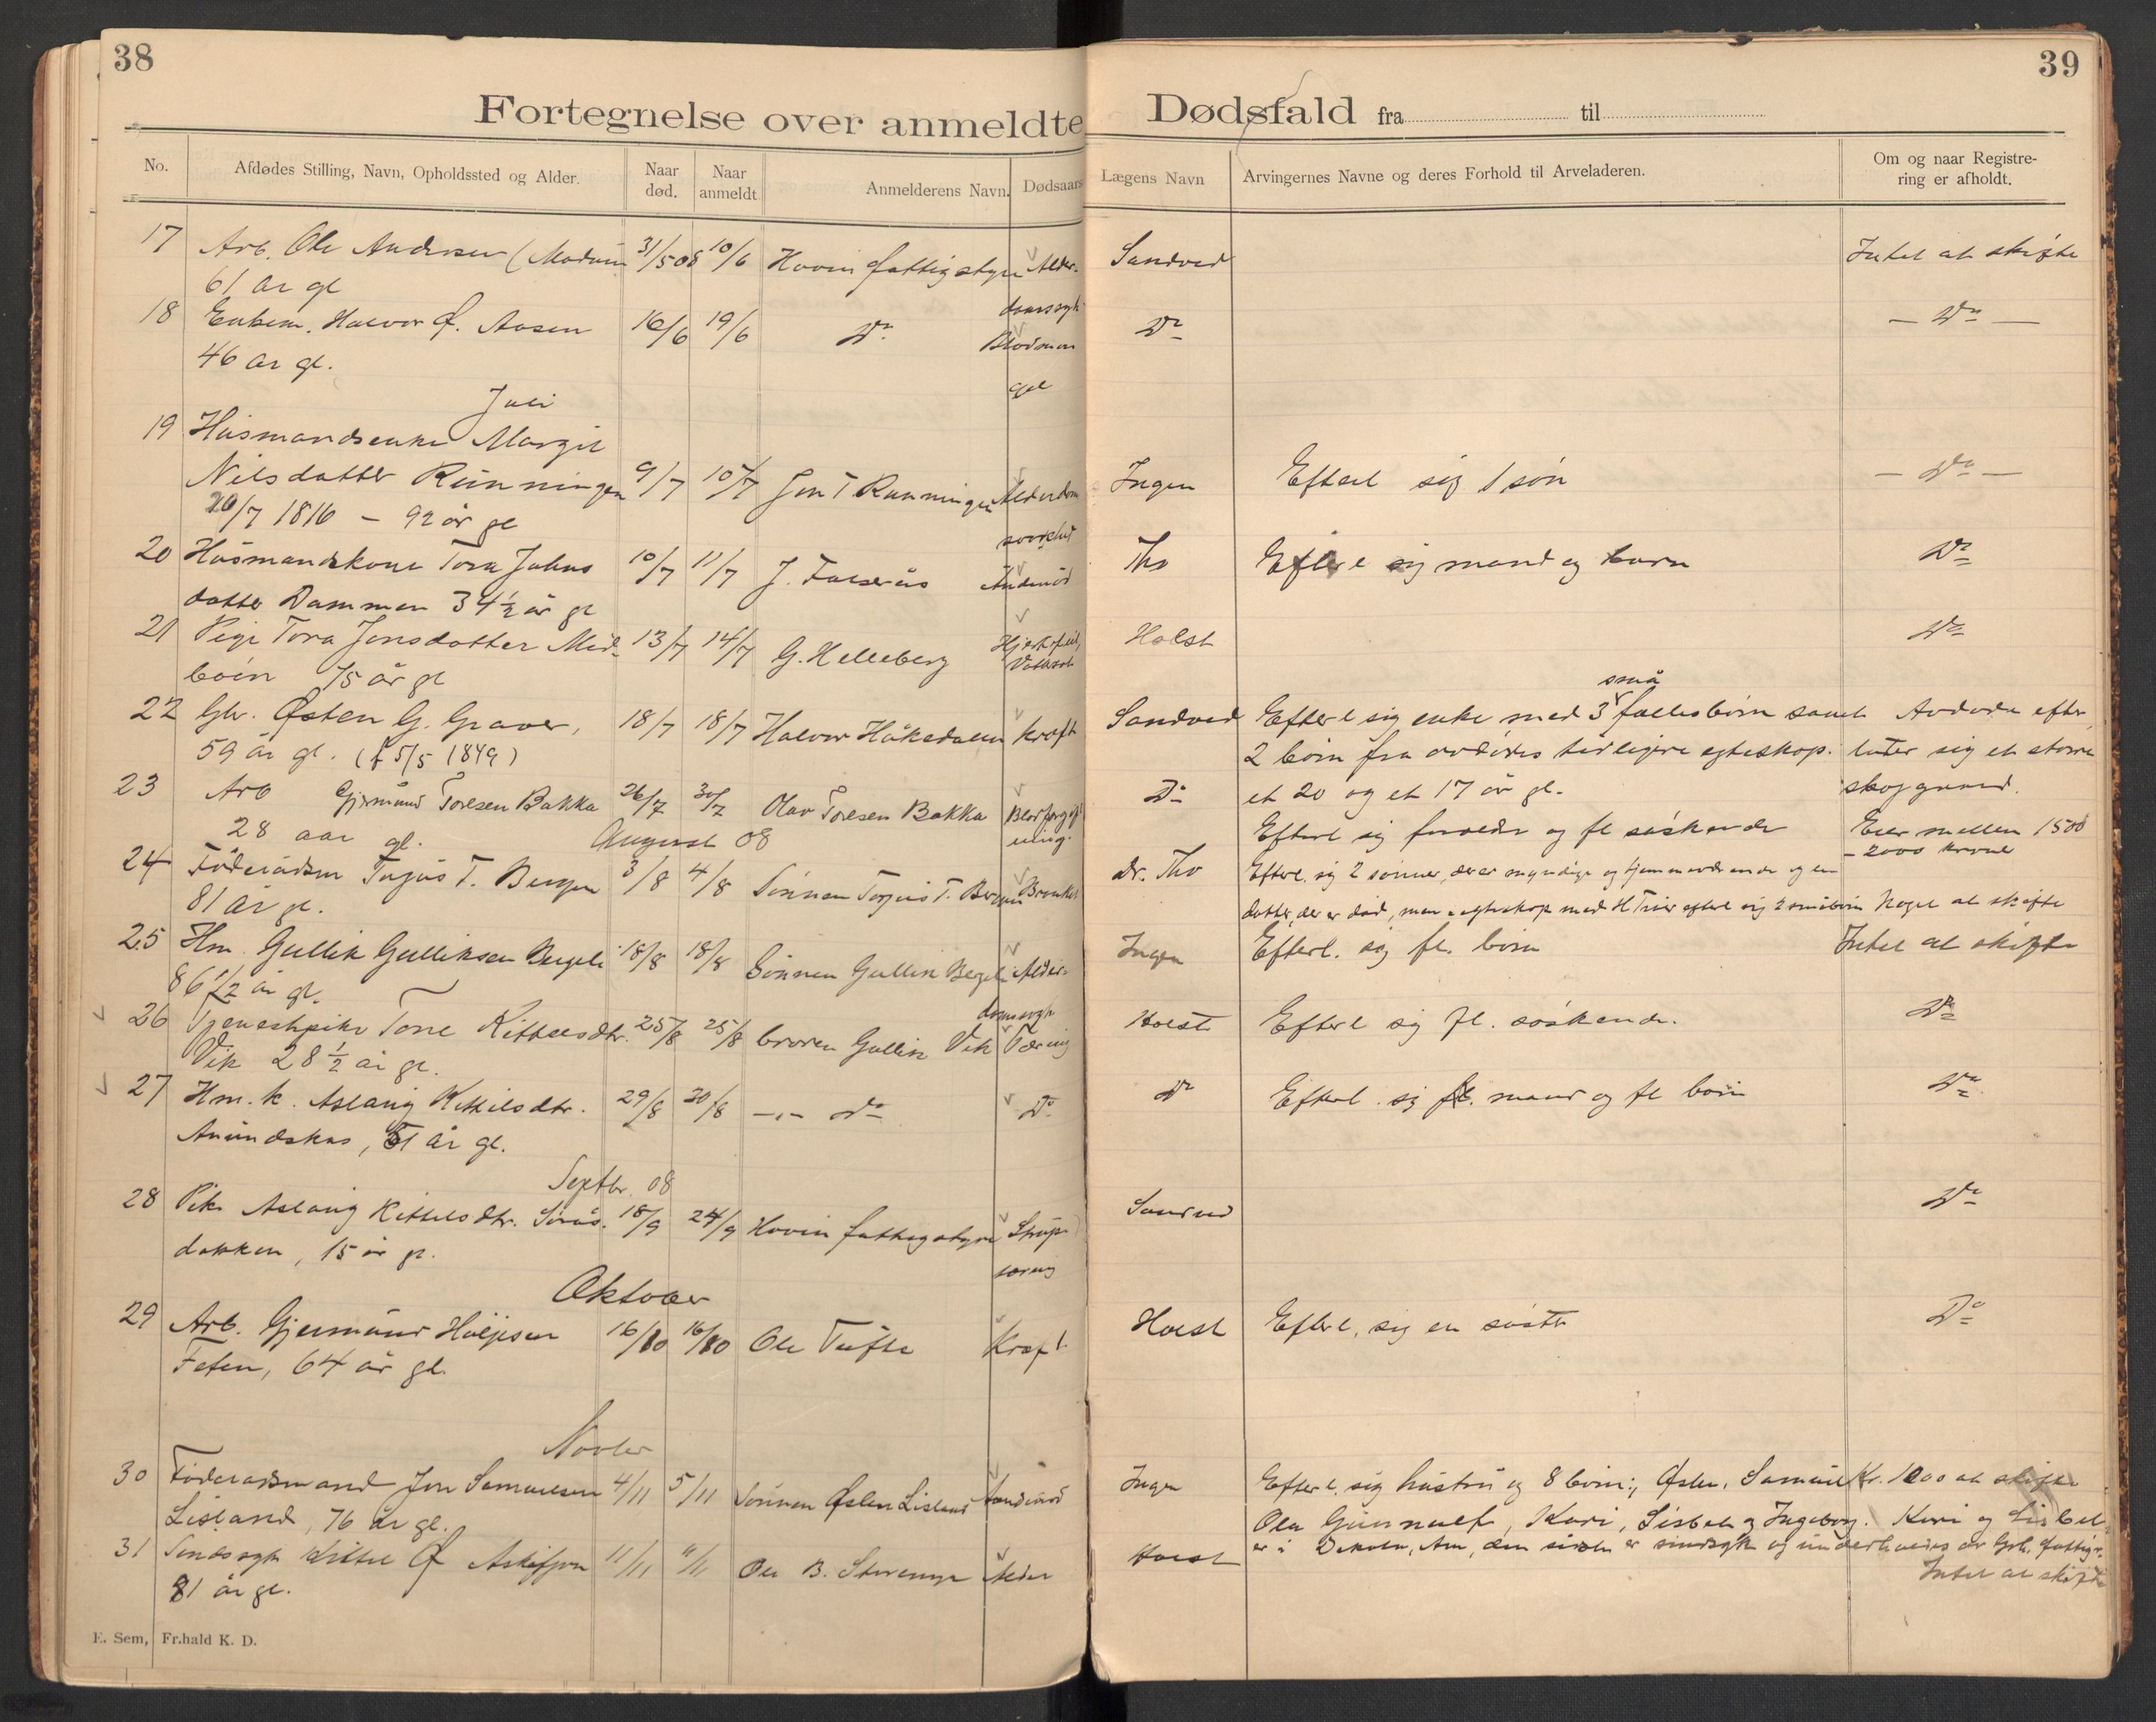 38
39
Fortegnelse over anmeldte Dødsfald fra til
No. Afdødes Stilling, Navn, Opholdssted og Alder. Naar død. Naar anmeldt Anmelderens Navn. Dødsaars Lægens Navn Arvingernes Navne og deres Forhold til Arveladeren. Om og naar Registrering er afholdt.
17 Arb. Ole Andersen (Modum 31/5 08 10/6 Hovin fattigstyre Alder- Sandved Intet at skifte
61 år gl domssygd
18 Enkem. Halvor Ø. Aasen 16/6 19/6 Do Blodman Do — Do —
46 år gl. gel
Juli
19 Husmandsenke Margit
Nilsdatter Rünningen 9/7 10/7 Jon T Rünningen Alderdom Ingen Efterl sig 1 søn — Do —
20/7 1816 – 92 år gl
20 Husmandskone Tora Johns 10/7 11/7 Ths Efterl sig mand og barn Do
datter Dammen 34 1/2 år gl
21 Pige Tora Jonsdatter Mid- 13/7 14/7 G. Helleberg Hjertefeil, Holst Do
böen 75 år gl Vattersot
22 Gbr. Østen G. Graver, 18/7 18/7 Halvor Håkedalen Kræft Sandved Efterl sig enke med 3 små fællesbörn samt Avdøde efter
59 år gl. (f 5/5 1849) 2 börn fra avdödes tidligere egteskap. later sig et större
23 Arb Gjermund Toresen Bakka 26/7 30/7 Olav Toresen Bakka Blodforgift Do et 20 og et 17 år gl. skoggaard.
28 aar gl. ning. Efterl sig forældre og fl söskende Eier mellem 1500
August 08 – 2000 kroner
24 Föderådsm Torjus T. Bergen 3/8 4/8 Sønnen Torjus T. Bergen Bronkit dr. Tho Efterl. sig 2 sönner, der er myndige og hjemmeværende og en
81 år gl. datter, der er död, men i egteskap med H Triær efterl sig 2 småbörn Noget at skifte
25 Hm. Gullik Gulliksen Bergeli 18/8 18/8 Sönnen Gullik Bergeli Alder- Ingen Efterl. sig fl. börn Intet at skifte
86 1/2 år gl. domssygd
26 Tjenestpike Tone Kittelsdtr. 25/8 25/8 broren Gullik Vik Tæring Holst Efterl sig fl. söskende. Do
Vik 28 1/2 år gl.
27 Hm. k. Aslaug Kittilsdtr. 29/8 30/8 —"— Do Do Do Efterl. sig mand og fl börn Do
Amundskås, 51 år gl.
Septbr. 08
28 Pike Aslaug Kittelsdtr. Sörås- 18/9 24/9 Hovin fattigstyre Strupe Sandved Do
dokken, 15 år gl. tæring
Oktober
29 Arb. Gjermund Höljesen 16/10 16/10 Ole Tüfte Kræft Holst Efterl. sig en söster Do
Foten, 64 år gl.
Novber
30 Föderaadsmand Jon Samuelsen 4/11 5/11 Sönnen Østen Lisland Aandenöd Ingen Efterl. sig hustru og 8 börn; Østen, Samuel Kr. 1000 at skifte
Lisland, 76 år gl. Ola Gunnulf, Kari, Lisbet og Ingeborg. Kari og Lisbet
31 Sindssyk Kittel Ø 11/11 Ole B. Alder Holst er i Dakota, Am, den sidste er sindssyk og underholdes av Grb. fattigv.
81 år gl. Intet at skifte
E. Sem, Fr.hald K. D.